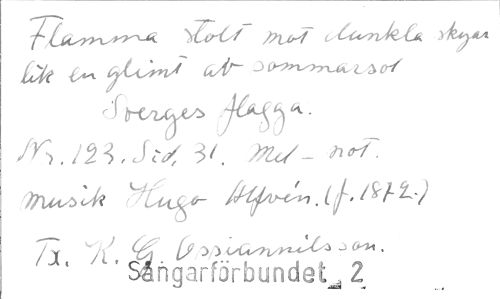 Flamma stolt mot dunkla skyar
lik en glimt av sommarsol
Sverges flagga.
Nr. 123. Sid. 31. Mel - not.
musik Hugo Alfvén. (f. 1872.)
Tx. K. G. Ossiannilsson.
Sångarförbundet 2